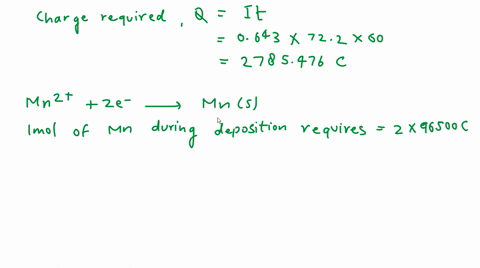 Charge required, Q = It
= 0.643 × 72.2 × 60
= 2785.476 C
Mn²⁺ + 2e⁻ ⟶ Mn(s)
1mol of Mn during deposition requires = 2 × 96500C